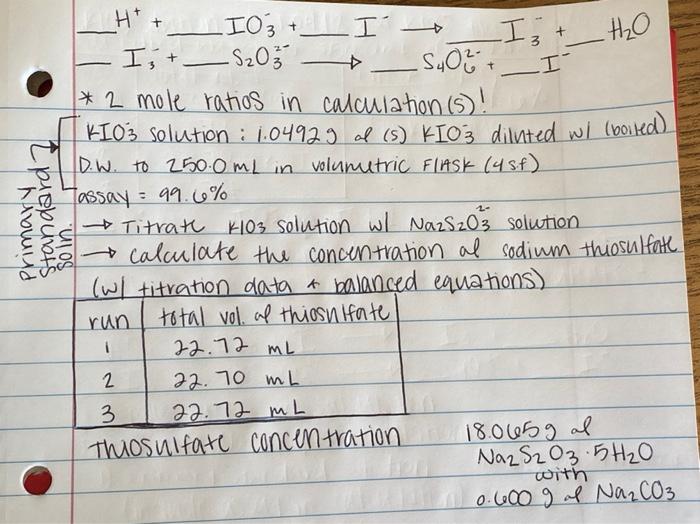 __H⁺ + ___IO₃⁻ + ___I⁻ → ___I₃⁻ + __H₂O
__I₃⁻ + ___S₂O₃²⁻ → ___S₄O₆²⁻ + __I⁻
* 2 mole ratios in calculation(s)!
KIO₃ solution : 1.0492g of (s) KIO₃ diluted w/ (boiled)
D.W. to 250.0 mL in volumetric Flask (4sf)
assay = 99.6%
Primary
Standard
soln
→ Titrate KIO₃ solution w/ Na₂S₂O₃²⁻ solution
→ calculate the concentration of sodium thiosulfate
(w/ titration data & balanced equations)
run total vol. of thiosulfate
1 22.72 mL
2 22.70 mL
3 22.72 mL
thiosulfate concentration
18.065g of
Na₂S₂O₃·5H₂O
with
0.600 g of Na₂CO₃